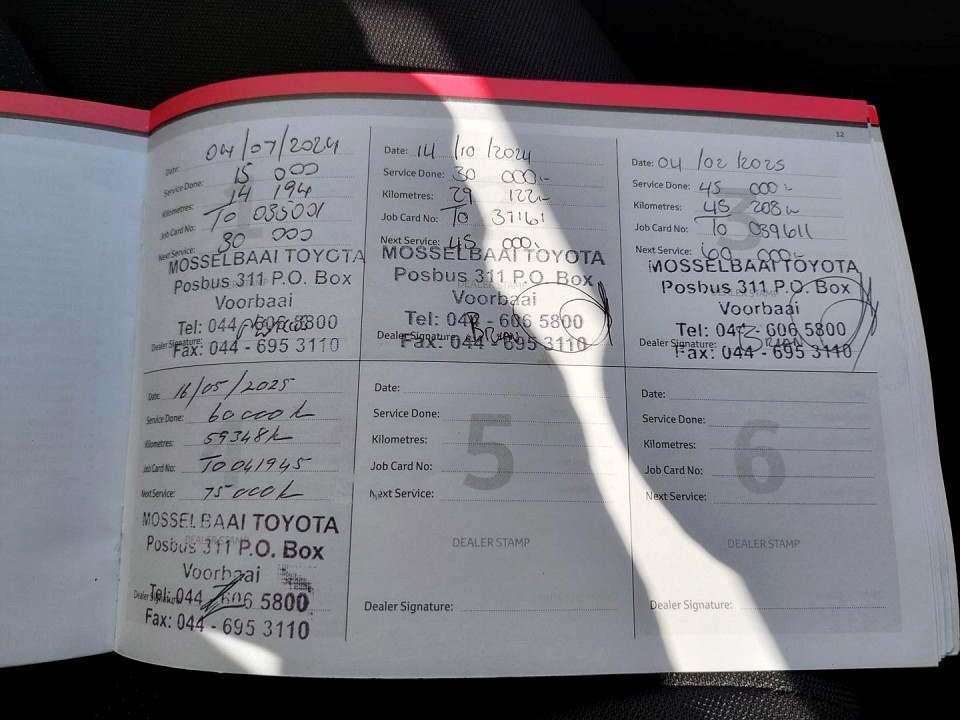 12
Date: 04/07/2024
Service Done: 15 000
Kilometres: 14 194
Job Card No: TO 035001
Next Service: 30 000
MOSSELBAAI TOYOTA
Posbus 311 P.O. Box
Voorbaai
Tel: 044 - 606 5800
Dealer Signature:
Fax: 044 - 695 3110
Date: 14/10/2024
Service Done: 30 000
Kilometres: 29 122
Job Card No: TO 37161
Next Service: 45 000
MOSSELBAAI TOYOTA
Posbus 311 P.O. Box
DEALER STAMP
Voorbaai
Tel: 044 - 606 5800
Dealer Signature: BRIAN
Fax: 044 - 695 3110
3
Date: 04/02/2025
Service Done: 45 000
Kilometres: 45 208
Job Card No: TO 039611
Next Service: 60 000
MOSSELBAAI TOYOTA
Posbus 311 P.O. Box
Voorbaai
Tel: 044 - 606 5800
Dealer Signature: BRIAN
Fax: 044 - 695 3110
Date: 16/05/2025
Service Done: 60000k
Kilometres: 59348k
Job Card No: TO041945
Next Service: 75000k
MOSSELBAAI TOYOTA
DEALER STAMP
Posbus 311 P.O. Box
Voorbaai
Tel: 044 - 606 5800
Dealer Signature:
Fax: 044 - 695 3110
5
Date:
Service Done:
Kilometres:
Job Card No:
Next Service:
DEALER STAMP
Dealer Signature:
6
Date:
Service Done:
Kilometres:
Job Card No:
Next Service:
DEALER STAMP
Dealer Signature: